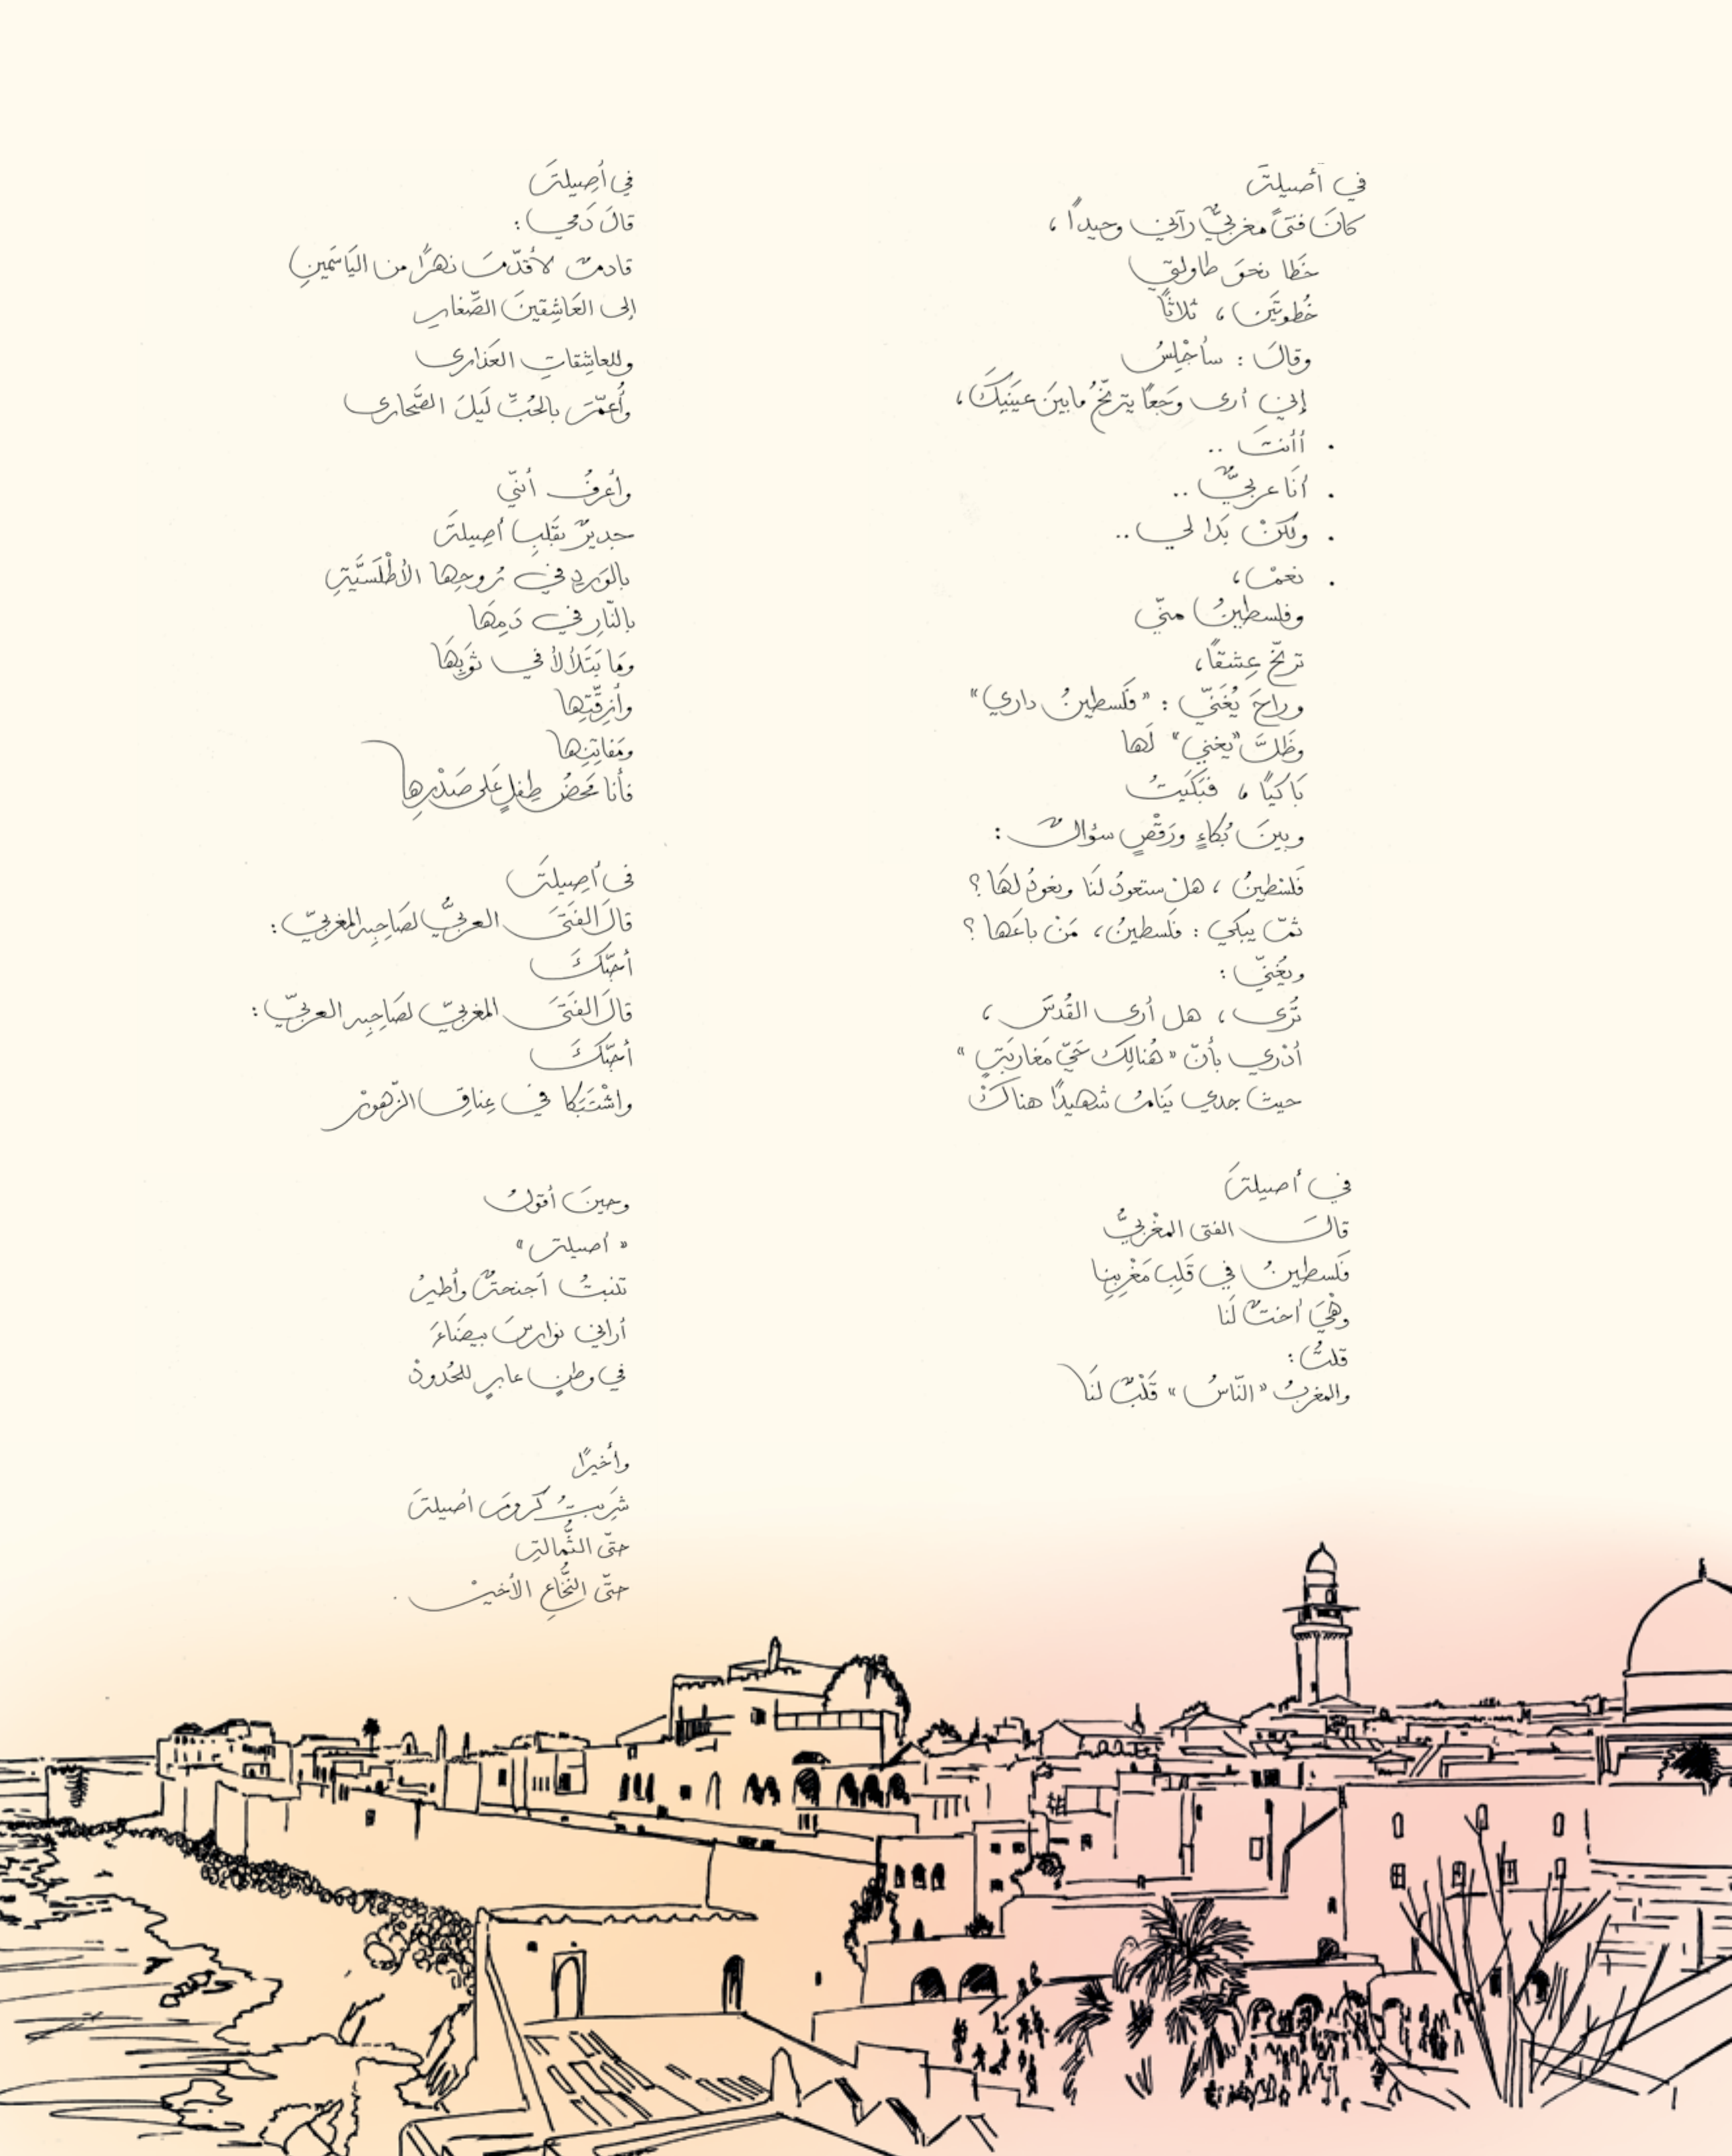 في أصيلةَ
كانَ فتىً مغربيٌّ رآني وحيداً،
خَطَا نحوَ طاولتي
خُطوتَين، ثلاثاً
وقالَ : سأجْلِسُ
إني أرى وَجَعاً يترنّحُ مابينَ عينَيكَ،
· أأنتَ ..
· أنَا عربيٌّ ..
· ولكنْ بَدا لي ..
· نعمْ،
وفلسطينُ منّي
ترنّحَ عِشقاً،
وراحَ يُغَنّي : «فَلسطينُ داري»
وظَلَّ "يغني" لَها
بَاكيًا، فبَكَيتُ
وبينَ بُكاءٍ ورَقْصٍ سؤالٌ :
فَلسْطينُ، هلْ ستعودُ لنَا ونعودُ لهَا ؟
ثمّ يبكي : فَلسطينُ، مَنْ باعَها ؟
ويُغنّي :
تُرى، هل أرى القُدسَ،
أدْري بأنّ «هُنالِكَ حَيَّ مَغاربَةٍ»
حيثُ جدي يَنامُ شهيدًا هناكْ
في أصيلةَ
قالَ الفتى المغْربيُّ
فَلسطينُ في قَلبِ مَغْرِبِنِا
وهْيَ أختٌ لَنا
قلتُ :
والمغربُ «النّاسُ» قَلْبٌ لَنَا
في أَصِيلةَ
قالَ دَمي :
قادمٌ لأُقدّمَ نهرًا من اليَاسَمينِ
إلى العَاشِقينَ الصِّغارِ
وللعاشِقاتِ العَذارى
وأُعمّرَ بالحُبِّ لَيلَ الصَّحارى
وأعْرِفُ أننّي
جديرٌ بقَلبِ أصِيلةَ
بالوَردِ في رُوحِها الأطْلَسيَّةِ
بالنّارِ في دَمِهَا
ومَا يَتَلألأُ في ثوَبِهَا
وأزِقّتِها
ومَفاتِنِها
فأنا مَحَضُ طِفلٍ عَلى صَدْرِها
في أَصِيلةَ
قالَ الفَتَى العربيُّ لصَاحِبِه المغربيّ :
أحبّكَ
قالَ الفَتَى المغربيّ لصَاحِبِه العربيّ :
أحبّكَ
واشْتَبَكا في عِناقِ الزّهورْ
وحينَ أقولُ
«أصيلة»
تنبتُ أجنحةٌ وأطيرُ
أراني نوارسَ بيضَاءَ
في وطنٍ عابرٍ للحُدودْ
وأخيرًا
شَرِبتُ كرومَ أصيلةَ
حتّى الثُّمالةِ
حتّى النُّخَاعِ الأخيرْ .